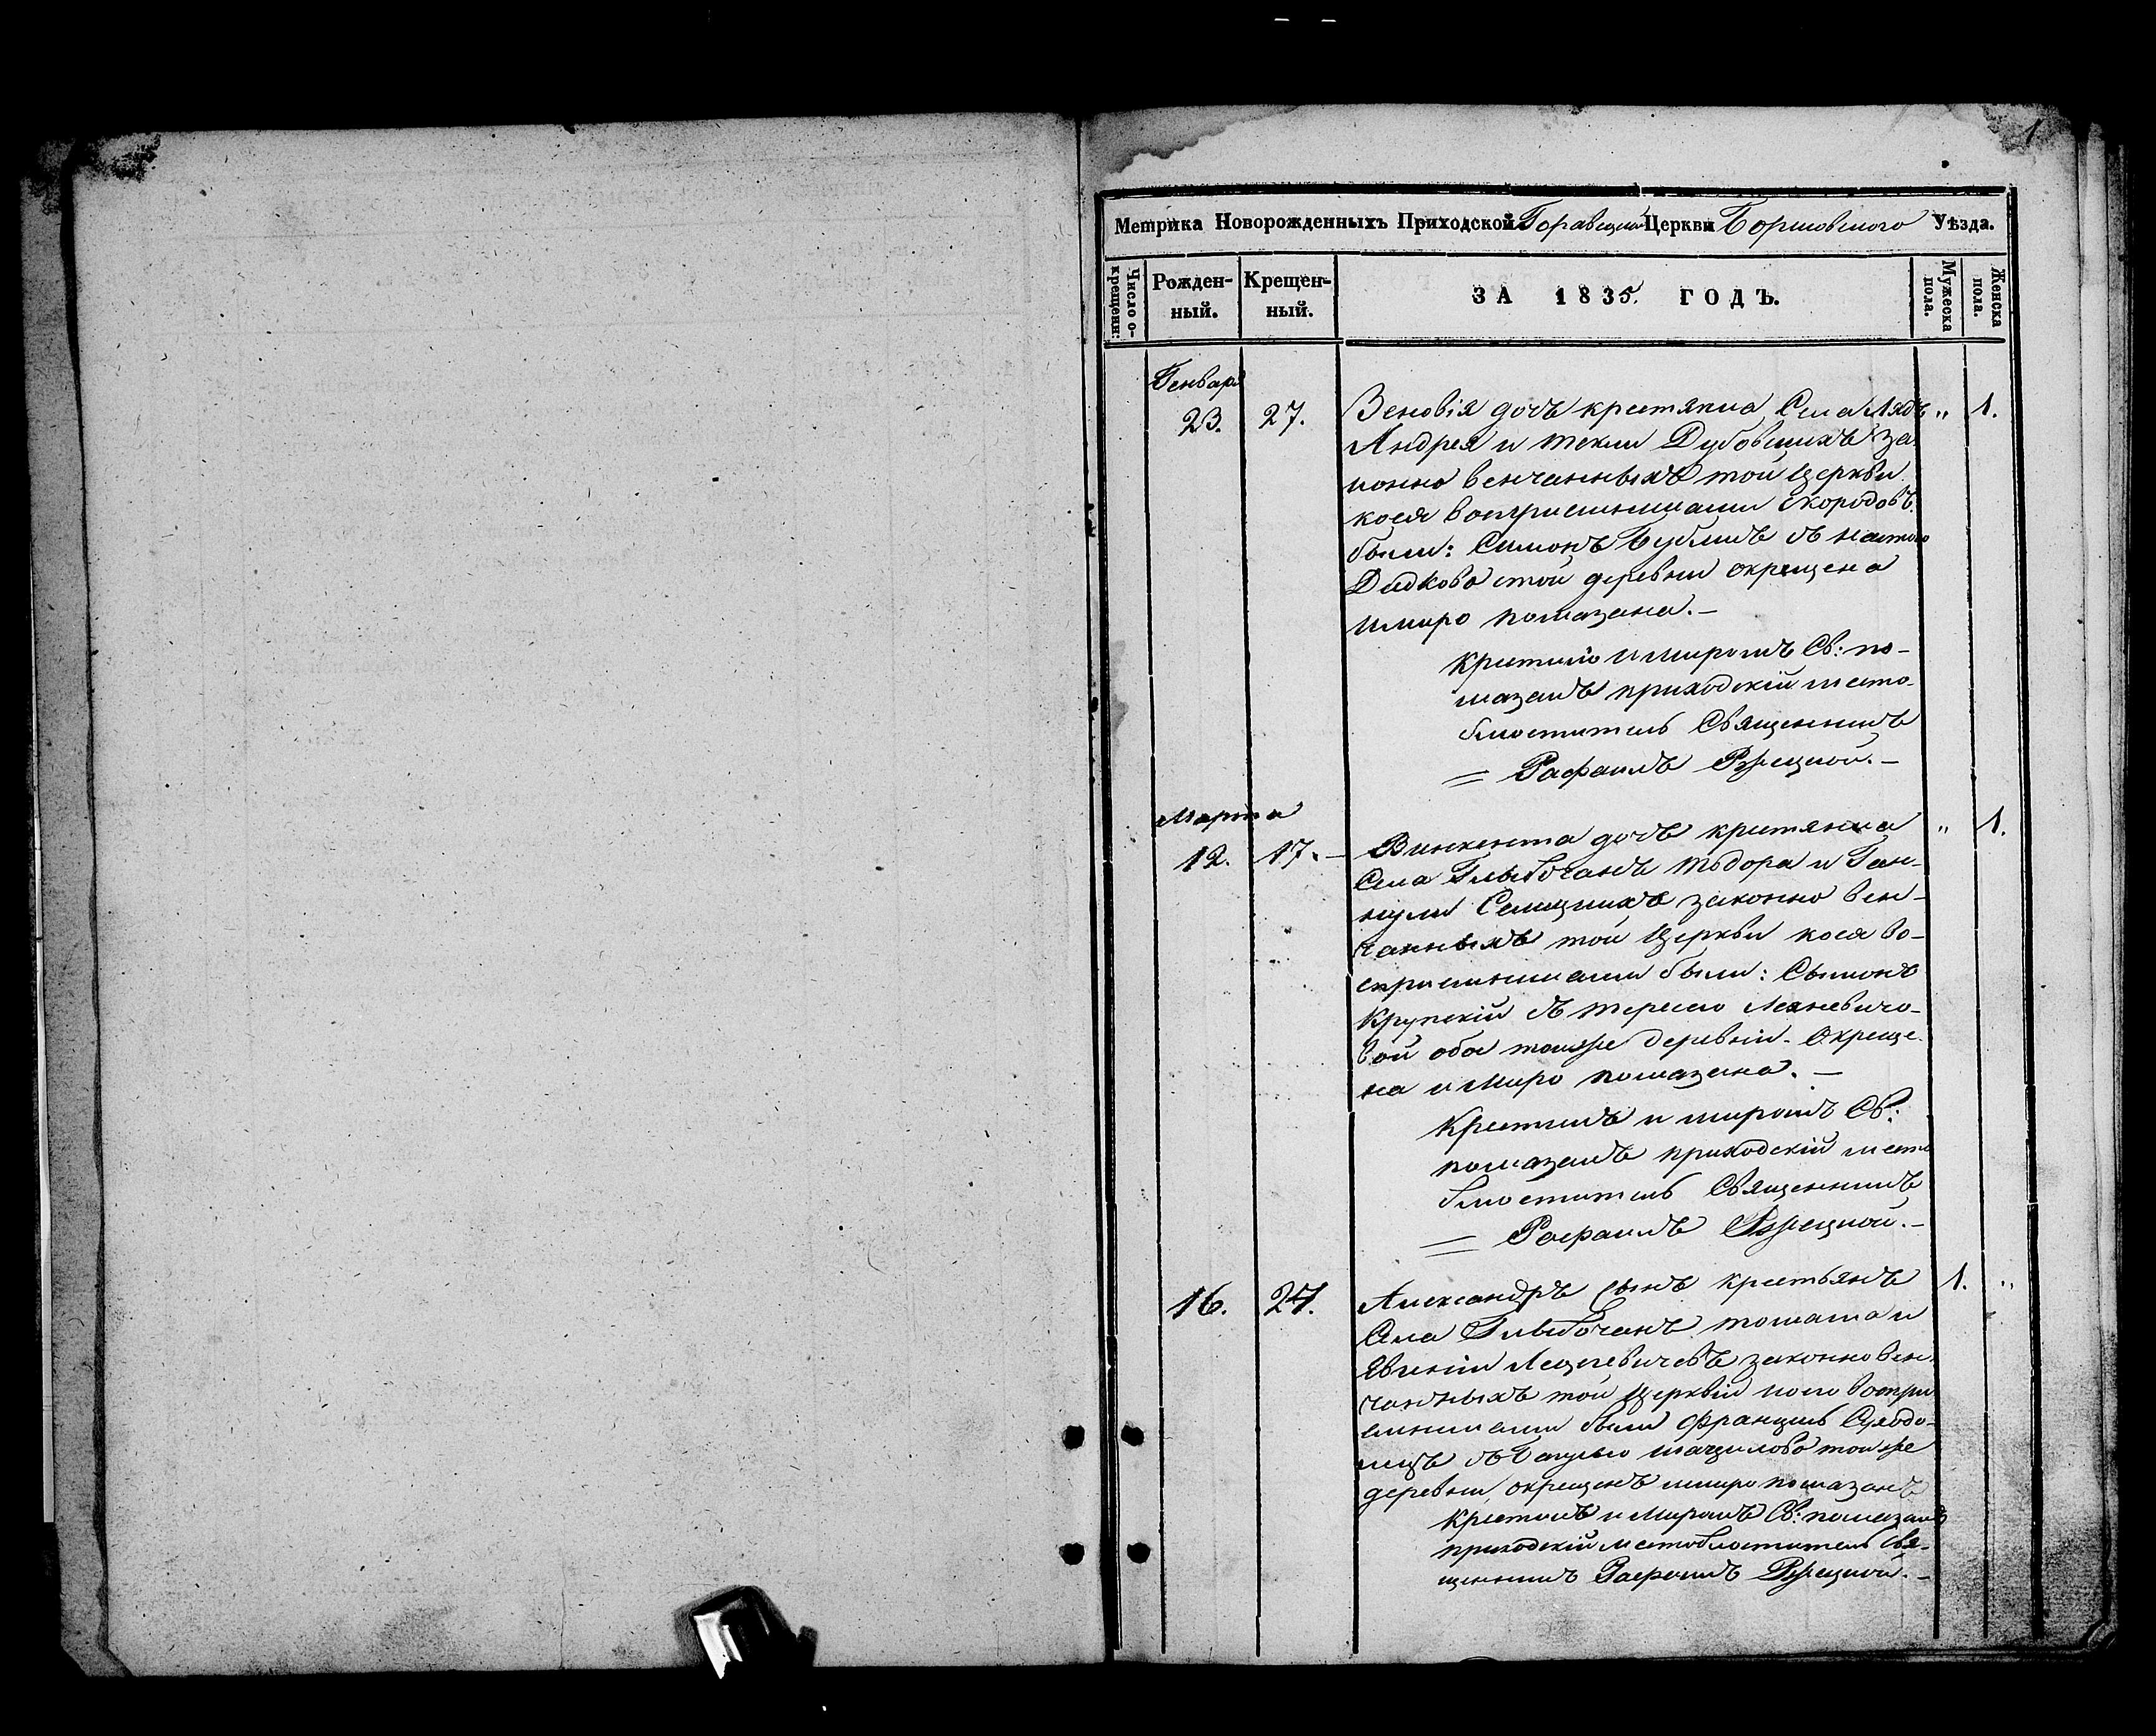 1
Метрика Новорожденныхъ Приходской Церкви Уѣзда.
Число о-
крещенн:
Рожден-
ный.
Крещен-
ный.
ЗА 1835. ГОДЪ.
Мужеска
пола.
Женска
пола.
Генваря
23. 27. Зеновія дочь крестянина Села Лядъ „ 1.
Андрея и Текли Дубовскихъ за
конно венчанныхъ той Церкви
коея восприемниками Скородовъ
были: Симонъ съ Настою
Дидково этой деревни окрещена
и миро помазана.—
крестилъ и миромъ Св: по-
мазалъ приходскій место
блюститель Священникъ
= Рафаилъ Ржецкой.—
Марта
12. 17.— Винкента дочь крестянина „ 1.
Села Глыбочанъ Тодора и Ган-
нули законно вен-
чанныхъ той Церкви коея во-
сприемниками были: Сымонъ
Крупскій съ Тересою Лехневичо-
вой обое тоейже деревни. Окреще
на и Миро помазана.—
Крестилъ и миромъ Св:
помазалъ приходскій место
блюститель Священникъ
= Рафаилъ Ржецкой.—
16. 24. Александръ сынъ крестьянъ 1. „
Села Глыбочанъ Томаша и
Евгеніи законно вен
чанныхъ той Церквіи коего воспри
емниками были Францишъ
съ тойже
деревни, окрещенъ и миро помазанъ
Крестилъ и Миромъ Св: помазалъ
приходскій Местоблюститель Свя-
щенникъ Рафаилъ Ржецкой.—